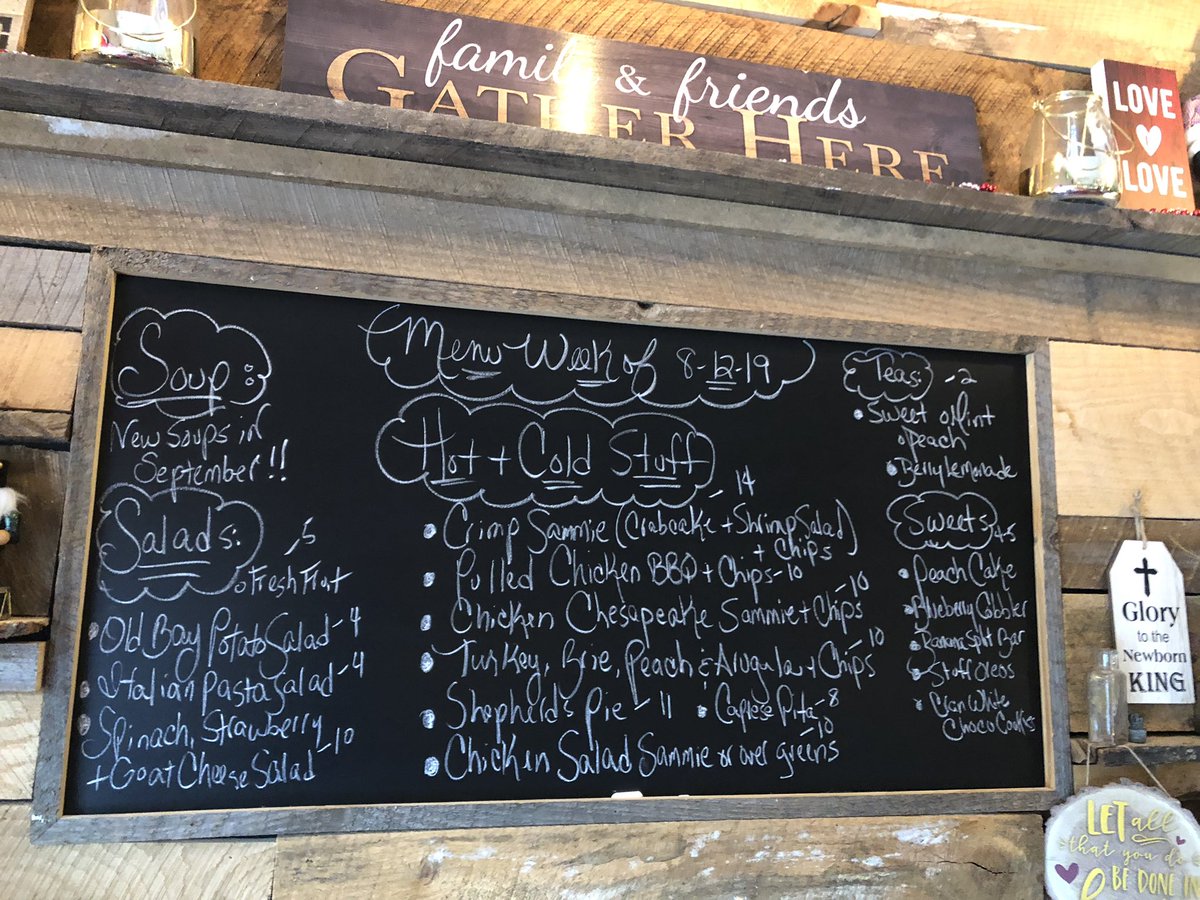 family & friends
GATHER HERE
LOVE
LOVE
Menu Week of 8-12-19
Soup:
New Soups in
September!!
Salads:
-5
• Fresh Fruit
• Old Bay Potato Salad -4
• Italian Pasta Salad -4
• Spinach, Strawberry
+ Goat Cheese Salad -10
Hot + Cold Stuff
-14
• Crimp Sammie (Crabcake + Shrimp Salad)
+ Chips
• Pulled Chicken BBQ + Chips -10
-10
• Chicken Chesapeake Sammie + Chips
-10
• Turkey, Brie, Peach & Arugula + Chips
• Shepherd's Pie -11 • Caprese Pita -8
-10
• Chicken Salad Sammie or over greens
Teas: -2
• Sweet • Mint
• Peach
• Berry Lemonade
Sweets
• Peach Cake
• Blueberry Cobbler
• Banana Split Bar
• Stuff Oreos
• Cran White
Choco Cookies
Glory
to the
Newborn
KING
LET all
that you do
BE DONE IN